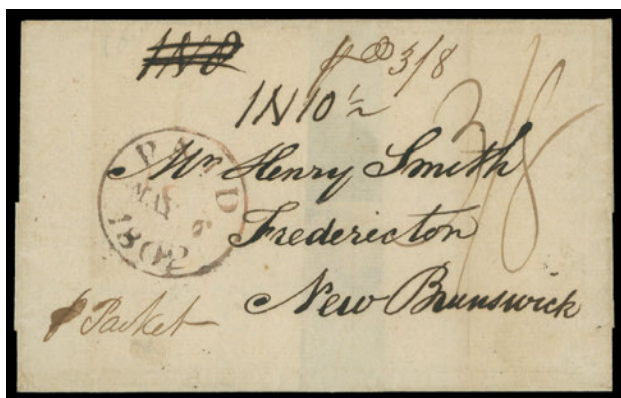 1N8
pd 3/8
1N10½
3/8
PAID
MAY 6
1802
Mr Henry Smith
Fredericton
New Brunswick
p Packet